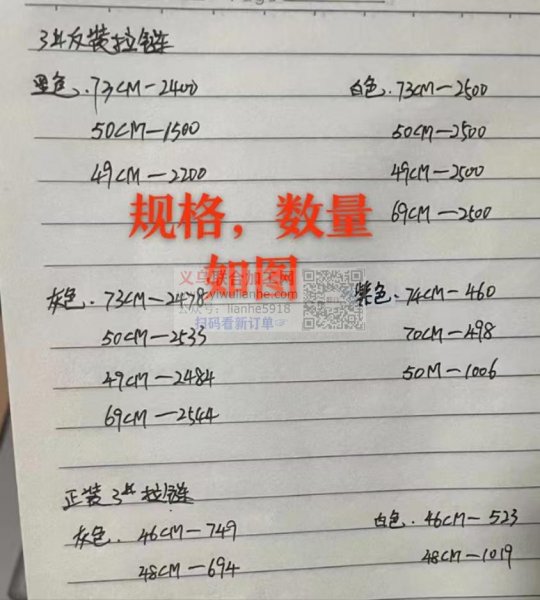 3#反装拉链
黑色. 73CM-2400
50CM-1500
49CM-2200
白色. 73CM-2500
50CM-2500
49CM-2500
69CM-2500
规格，数量
如图
灰色. 73CM-2478
50CM-2535
49CM-2484
69CM-2544
紫色. 74CM-460
70CM-498
50M-1006
义乌联合加工网
yiwulianhe.com
公众号: lianhe5918
扫码看新订单
正装3#拉链
灰色. 46CM-749
48CM-694
白色. 46CM-523
48CM-1019